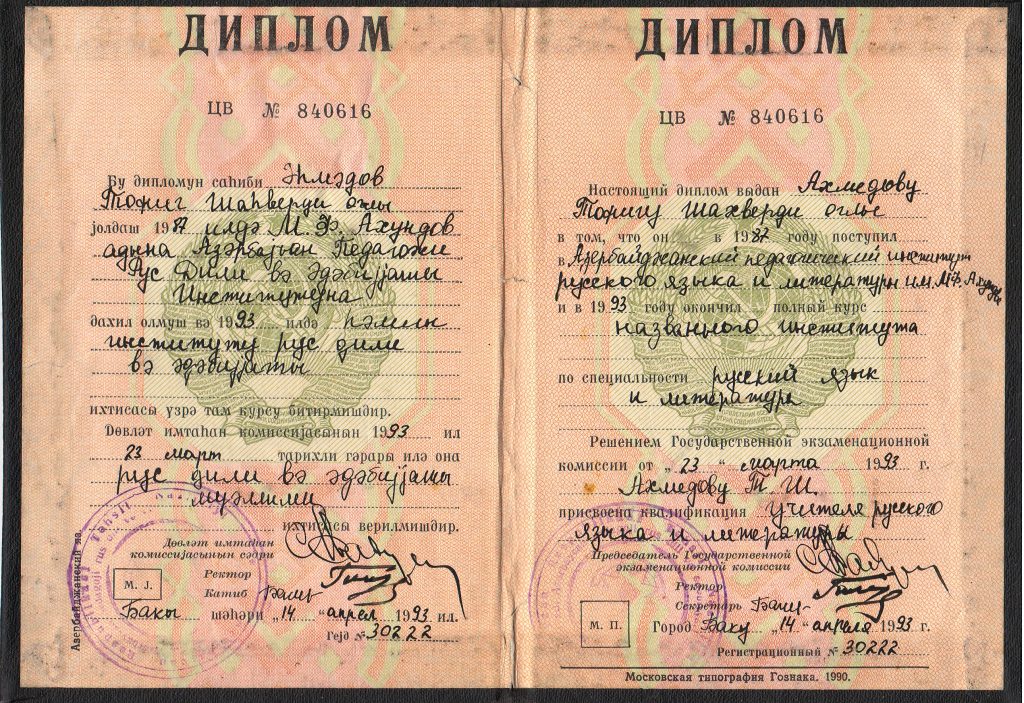 ДИПЛОМ
ЦВ № 840616
Бу дипломун саһиби Әһмәдов
Тофиг Шаһверди оғлы
јолдаш 1987 илдә М. Ф. Ахундов
адына Азәрбајҹан Педагожи
Рус Дили вә әдәбијјаты
Институтуна
дахил олмуш вә 1993 илдә һәмин
институту рус дили
вә әдәбијјаты
ихтисасы үзрә там курсу битирмишдир.
Дөвләт имтаһан комиссијасынын 1993 ил
23 март тарихли гәрары илә она
рус дили вә әдәбијјаты
муәллими
ихтисасы верилмишдир.
Дөвләт имтаһан
комиссијасынын сәдри
Ректор
Катиб
М. Ј.
Бакы шәһәри „14 “ апрел 1993 ил.
Гејд № 30222
Азербайджанский яз.
ДИПЛОМ
ЦВ № 840616
Настоящий диплом выдан Ахмедову
Тофигу Шахверди оглы
в том, что он в 1987 году поступил
в Азербайджанский педагогический институт
русского языка и литературы им. М.Ф. Ахундова
и в 1993 году окончил полный курс
названного института
по специальности русский язык
и литература
Решением Государственной экзаменационной
комиссии от „ 23 “ марта 1993 г.
Ахмедову Т. Ш.
присвоена квалификация учителя русского
языка и литературы
Председатель Государственной
экзаменационной комиссии
Ректор
Секретарь
М. П.
Город Баку „14 “ апреля 1993 г.
Регистрационный № 30222
Московская типография Гознака. 1990.